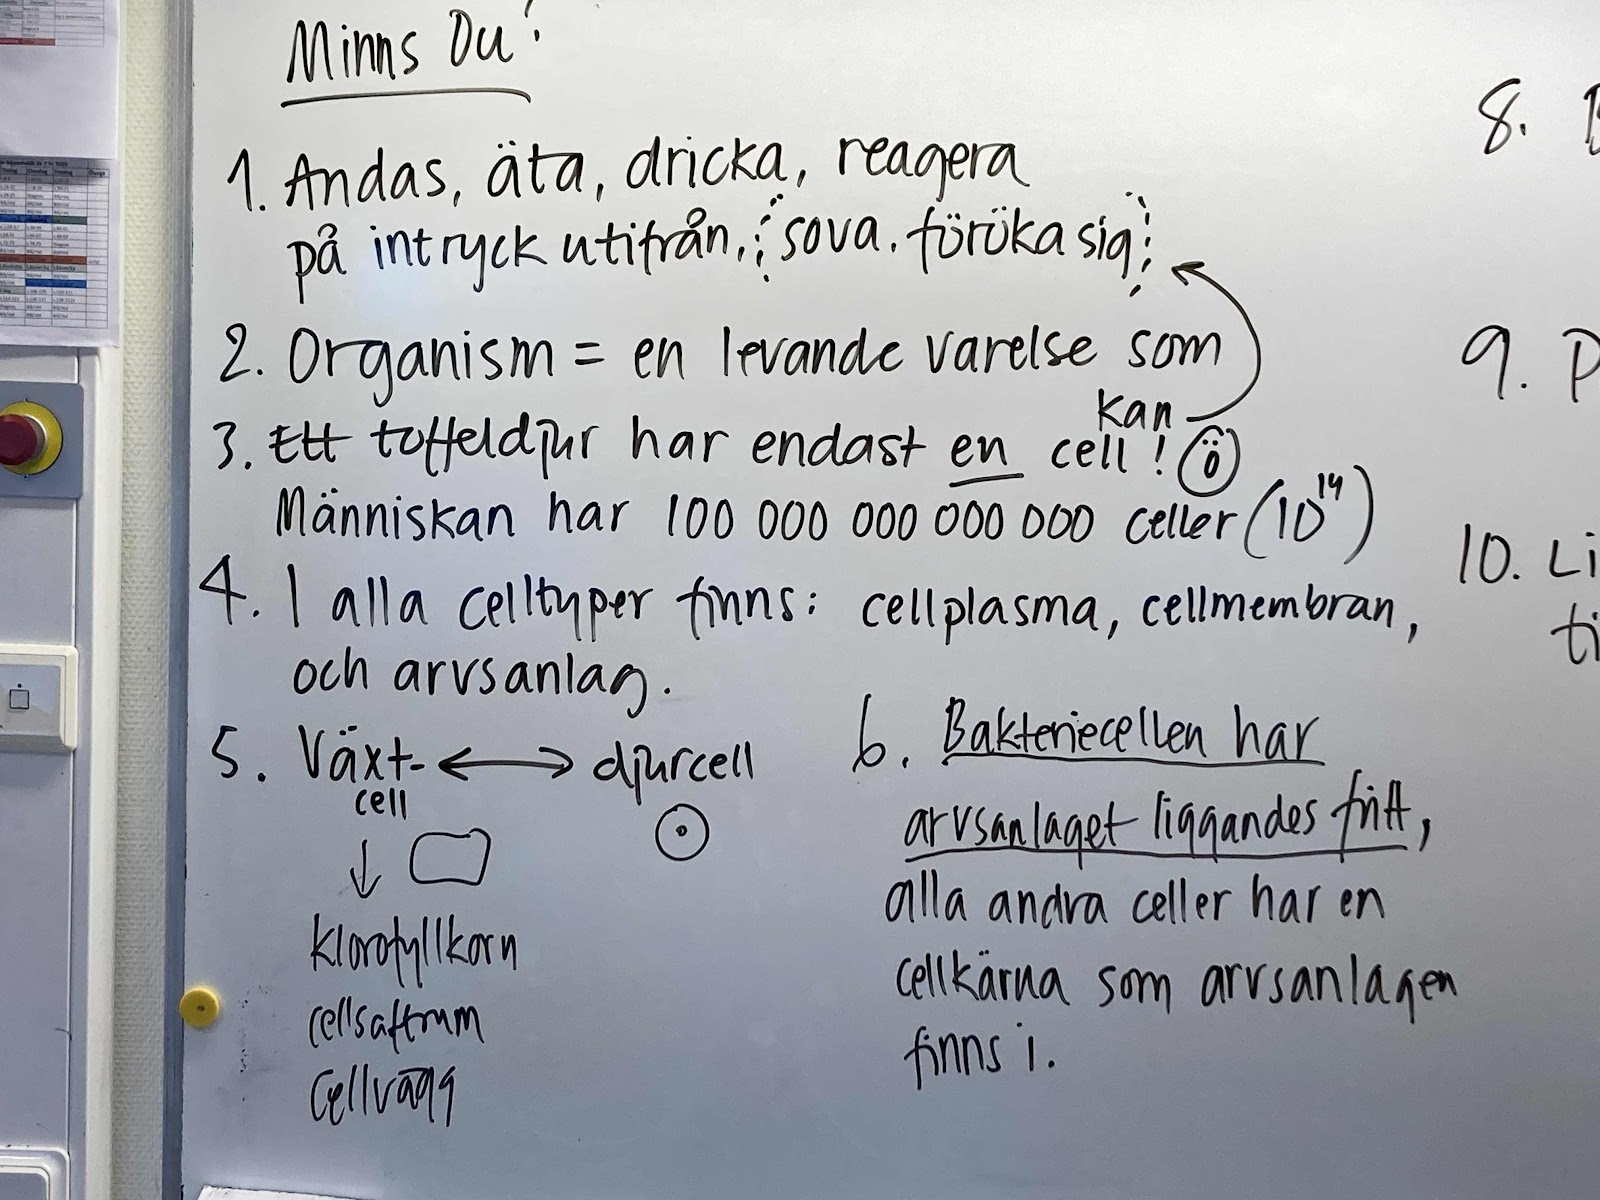 Minns Du?
1. Andas, äta, dricka, reagera
på intryck utifrån, sova, föröka sig
2. Organism = en levande varelse som
kan
3. Ett toffeldjur har endast en cell!
Människan har 100 000 000 000 000 celler (10¹⁴)
4. I alla celltyper finns: cellplasma, cellmembran,
och arvsanlag.
5. Växt- ↔ djurcell
cell
↓
klorofyllkorn
cellsaftrum
cellvägg
6. Bakteriecellen har
arvsanlaget liggandes fritt,
alla andra celler har en
cellkärna som arvsanlagen
finns i.
8.
9.
10. Li
ti